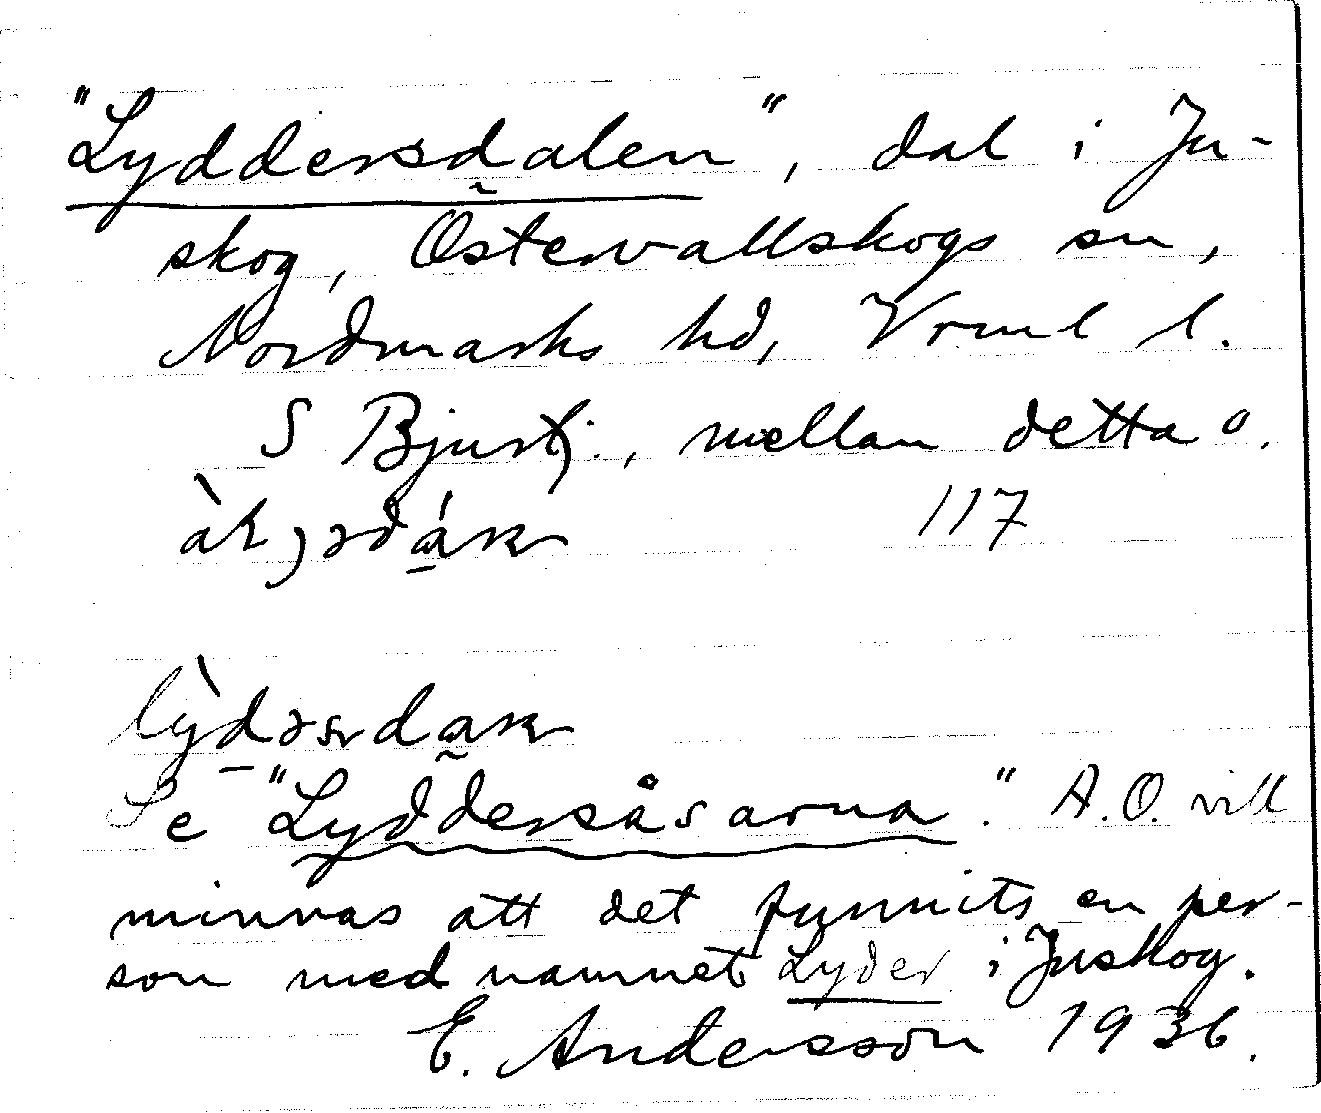 "Lyddersdalen", dal i Ju-
skog, Östervallskogs sn,
Nordmarks hd, Vrml l.
S Bjurtj., mellan detta o.
117
Se "Lyddersåsarna." A.O. vill
minnas att det funnits en per-
son med namnet Lyder i Juskog.
E. Andersson 1936.